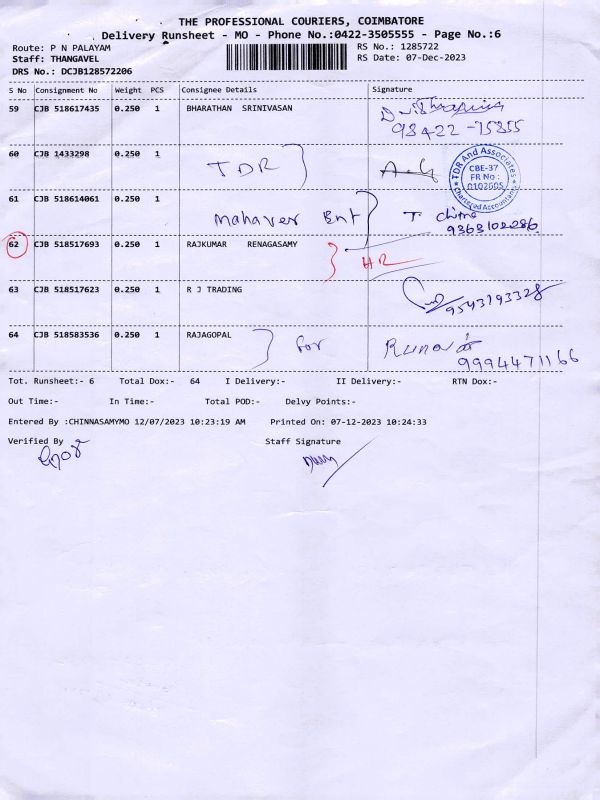 THE PROFESSIONAL COURIERS, COIMBATORE
Delivery Runsheet - MO - Phone No.:0422-3505555 - Page No.:6
Route: P N PALAYAM RS No.: 1285722
Staff: THANGAVEL RS Date: 07-Dec-2023
DRS No.: DCJB128572206
S No Consignment No Weight PCS Consignee Details Signature
59 CJB 518617435 0.250 1 BHARATHAN SRINIVASAN
98422-75855
60 CJB 1433298 0.250 1 TDR
TDR And Associates
CBE-37
FR No:
010260S
Chartered Accountants
61 CJB 518614061 0.250 1 Mahaver Ent T. Chima
9363102286
62 CJB 518517693 0.250 1 RAJKUMAR RENAGASAMY HR
63 CJB 518517623 0.250 1 R J TRADING
9543193328
64 CJB 518583536 0.250 1 RAJAGOPAL for
9994471166
Tot. Runsheet:- 6 Total Dox:- 64 I Delivery:- II Delivery:- RTN Dox:-
Out Time:- In Time:- Total POD:- Delvy Points:-
Entered By :CHINNASAMYMO 12/07/2023 10:23:19 AM Printed On: 07-12-2023 10:24:33
Verified By Staff Signature